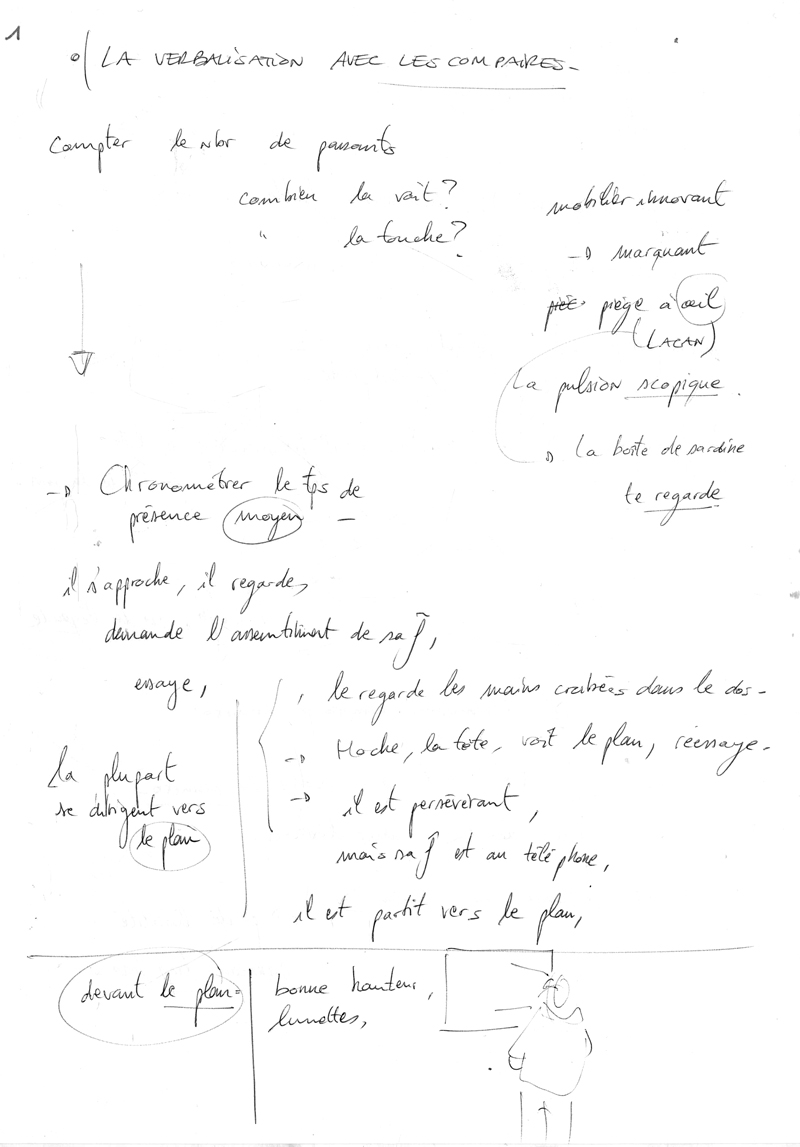 1
LA VERBALISATION AVEC LES COMPAIRES -
Compter le Nbr de passants
combien la voit?
" la touche?
mobilier innovant
→ marquant
piège à œil
(LACAN)
La pulsion scopique.
→ la boîte de sardine
te regarde
→ Chronométrer le tps de
présence moyen –
il s'approche, il regarde,
demande l'assentiment de sa f,
essaye,
, le regarde les mains croisées dans le dos -
→ Hoche, la tête, voit le plan, réessaye.
→ il est persévérant,
mais sa f est au téléphone,
il est partit vers le plan,
la plupart
se dirigent vers
le plan
devant le plan =
bonne hauteur,
lunettes,